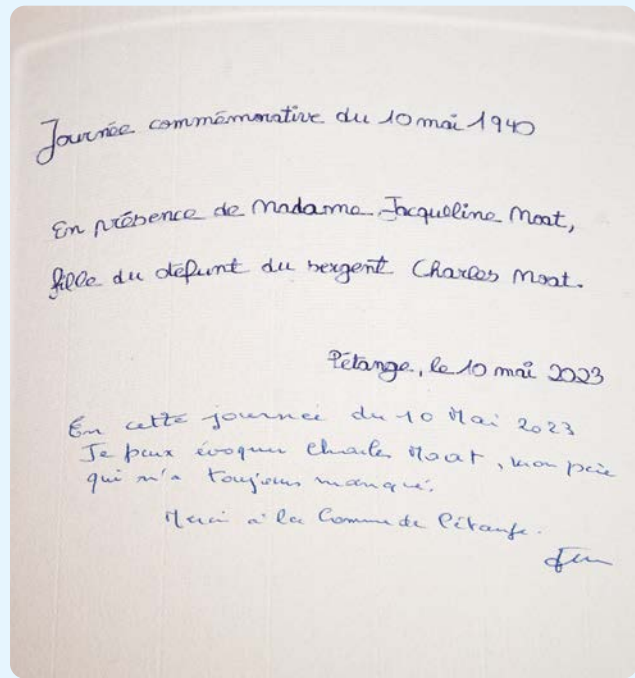 Journée commémorative du 10 mai 1940
En présence de Madame Jacqueline Moat,
fille du défunt du sergent Charles Moat.
Pétange, le 10 mai 2023
En cette journée du 10 Mai 2023
Je peux évoquer Charles Moat, mon père
qui m'a toujours manqué.
Merci à la Commune de Pétange.